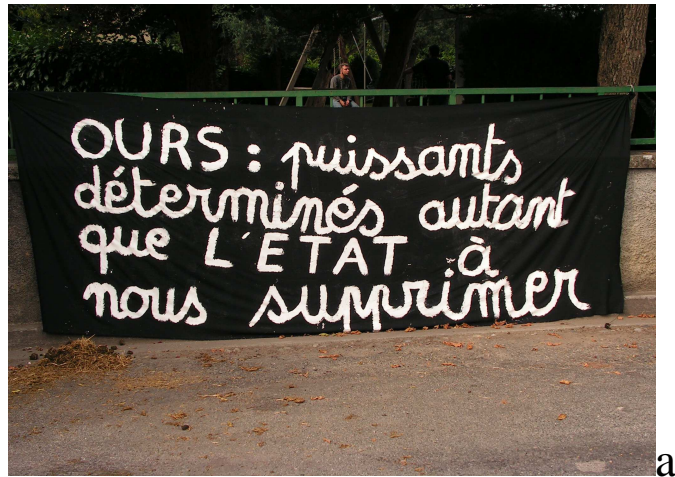 OURS : puissants
déterminés autant
que L'ETAT à
nous supprimer
a